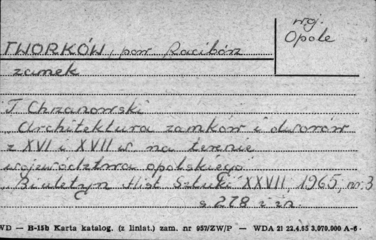 woj.
Opole
TWORKÓW, pow. Racibórz
zamek
T. Chrzanowski
"Architektura zamków i dworów
z XVI i XVII w na terenie
województwa opolskiego"
"Biuletyn Hist Sztuki" XXVII, 1965, nr. 3
s 278 i in.
WD — B-15b Karta katalog. (z linist.) zam. nr 953/ZW/P — WDA 21 22.4.65 3.070.000 A-6